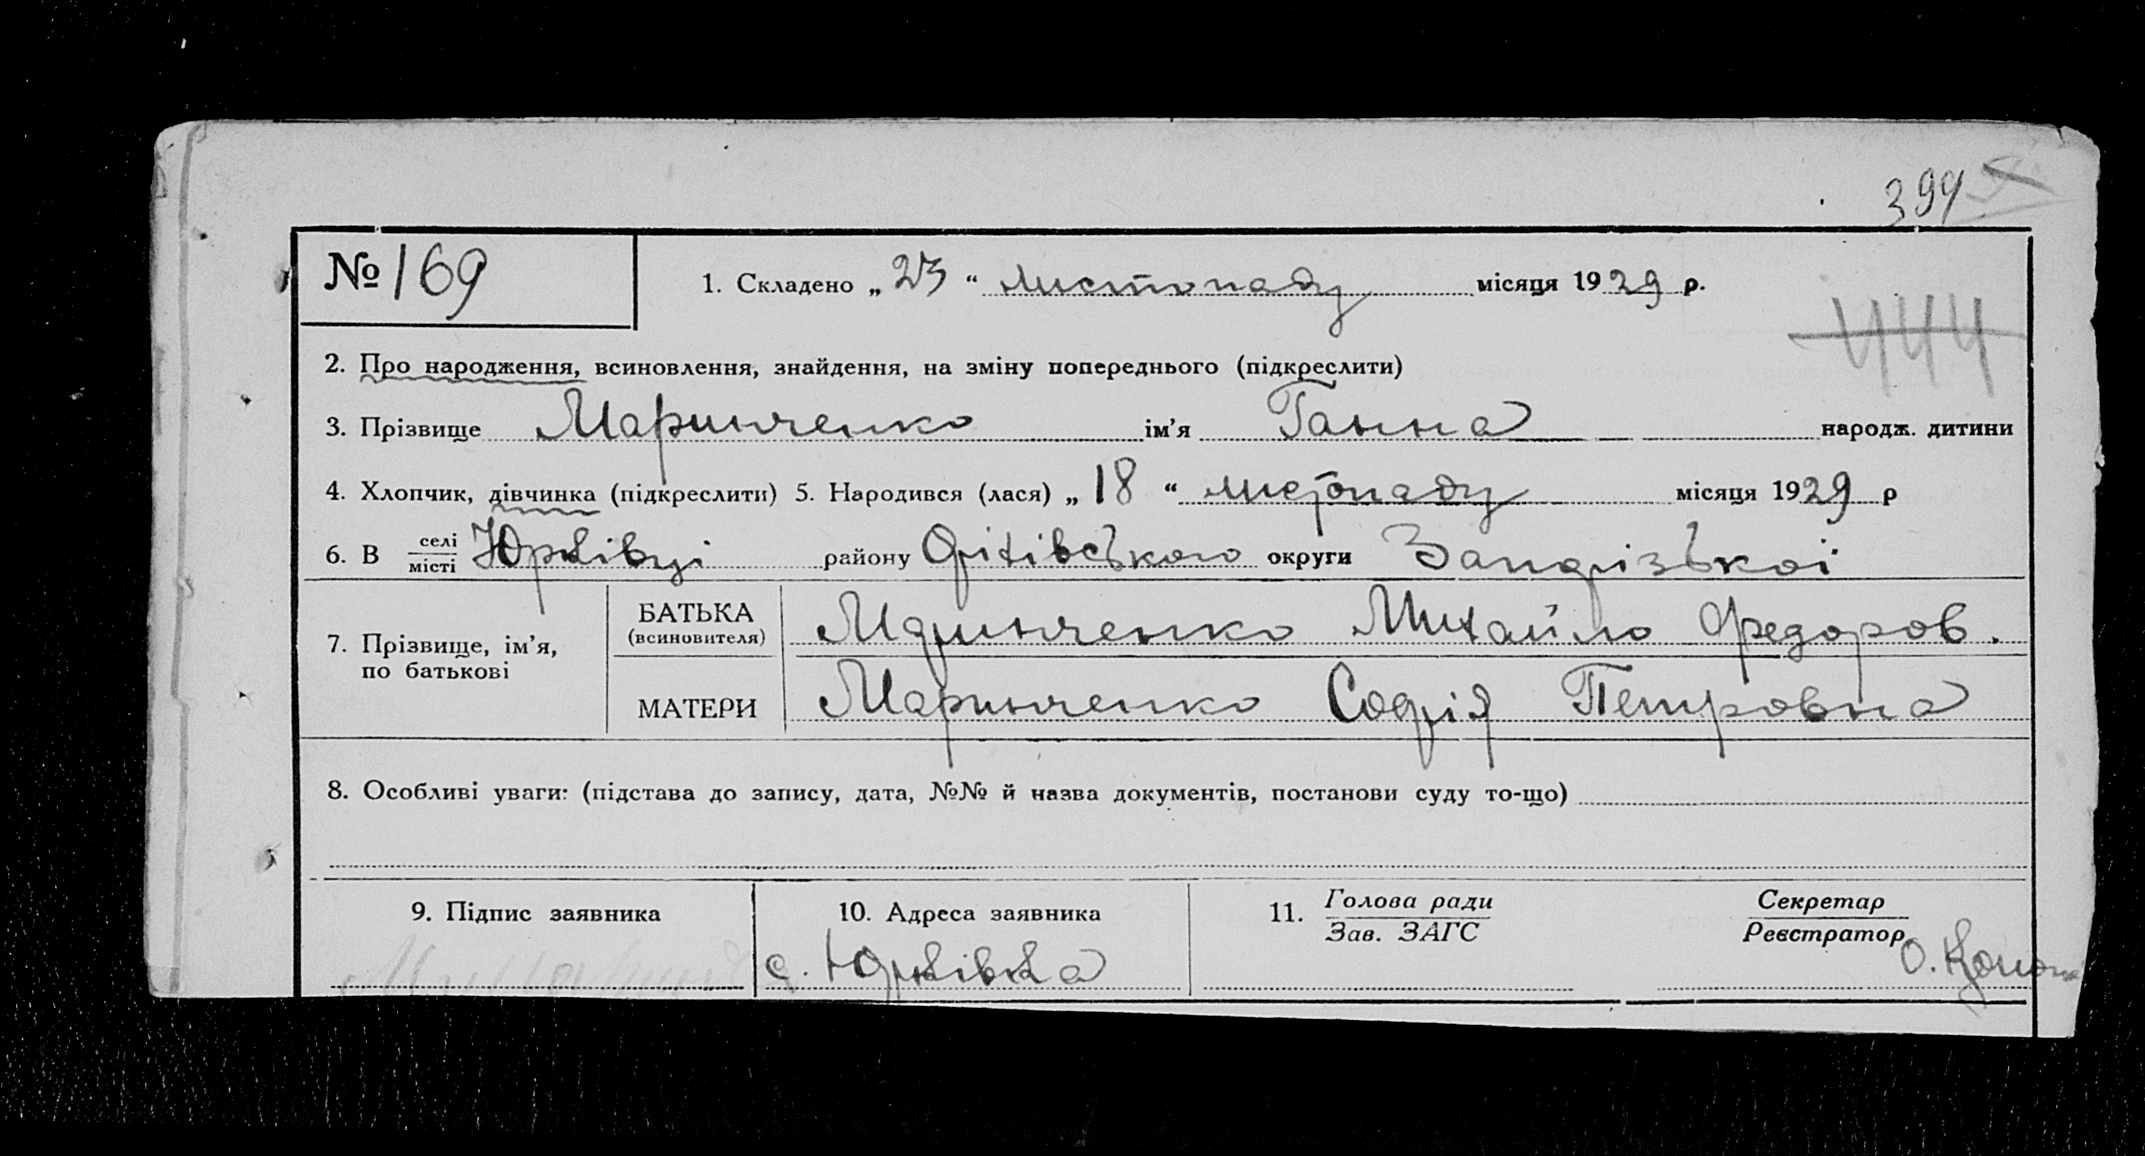 394
№ 169
1. Складено „ 23 “ листопаду місяця 1929 р.
444
2. Про народження, всиновлення, знайдення, на зміну попереднього (підкреслити)
3. Прізвище Маринченко ім’я Ганна народж. дитини
4. Хлопчик, дівчинка (підкреслити) 5. Народився (лася) „ 18 “ листопаду місяця 1929 р
6. В селі місті Юрківці району Оріхівського округи Запорізької
7. Прізвище, ім’я, по батькові
БАТЬКА (всиновителя) Маринченко Михайло Федоров.
МАТЕРИ Маринченко Софія Петровна
8. Особливі уваги: (підстава до запису, дата, №№ й назва документів, постанови суду то-що)
9. Підпис заявника
10. Адреса заявника
с. Юрківка
11. Голова ради
Зав. ЗАГС
Секретар
Реєстратор
О.